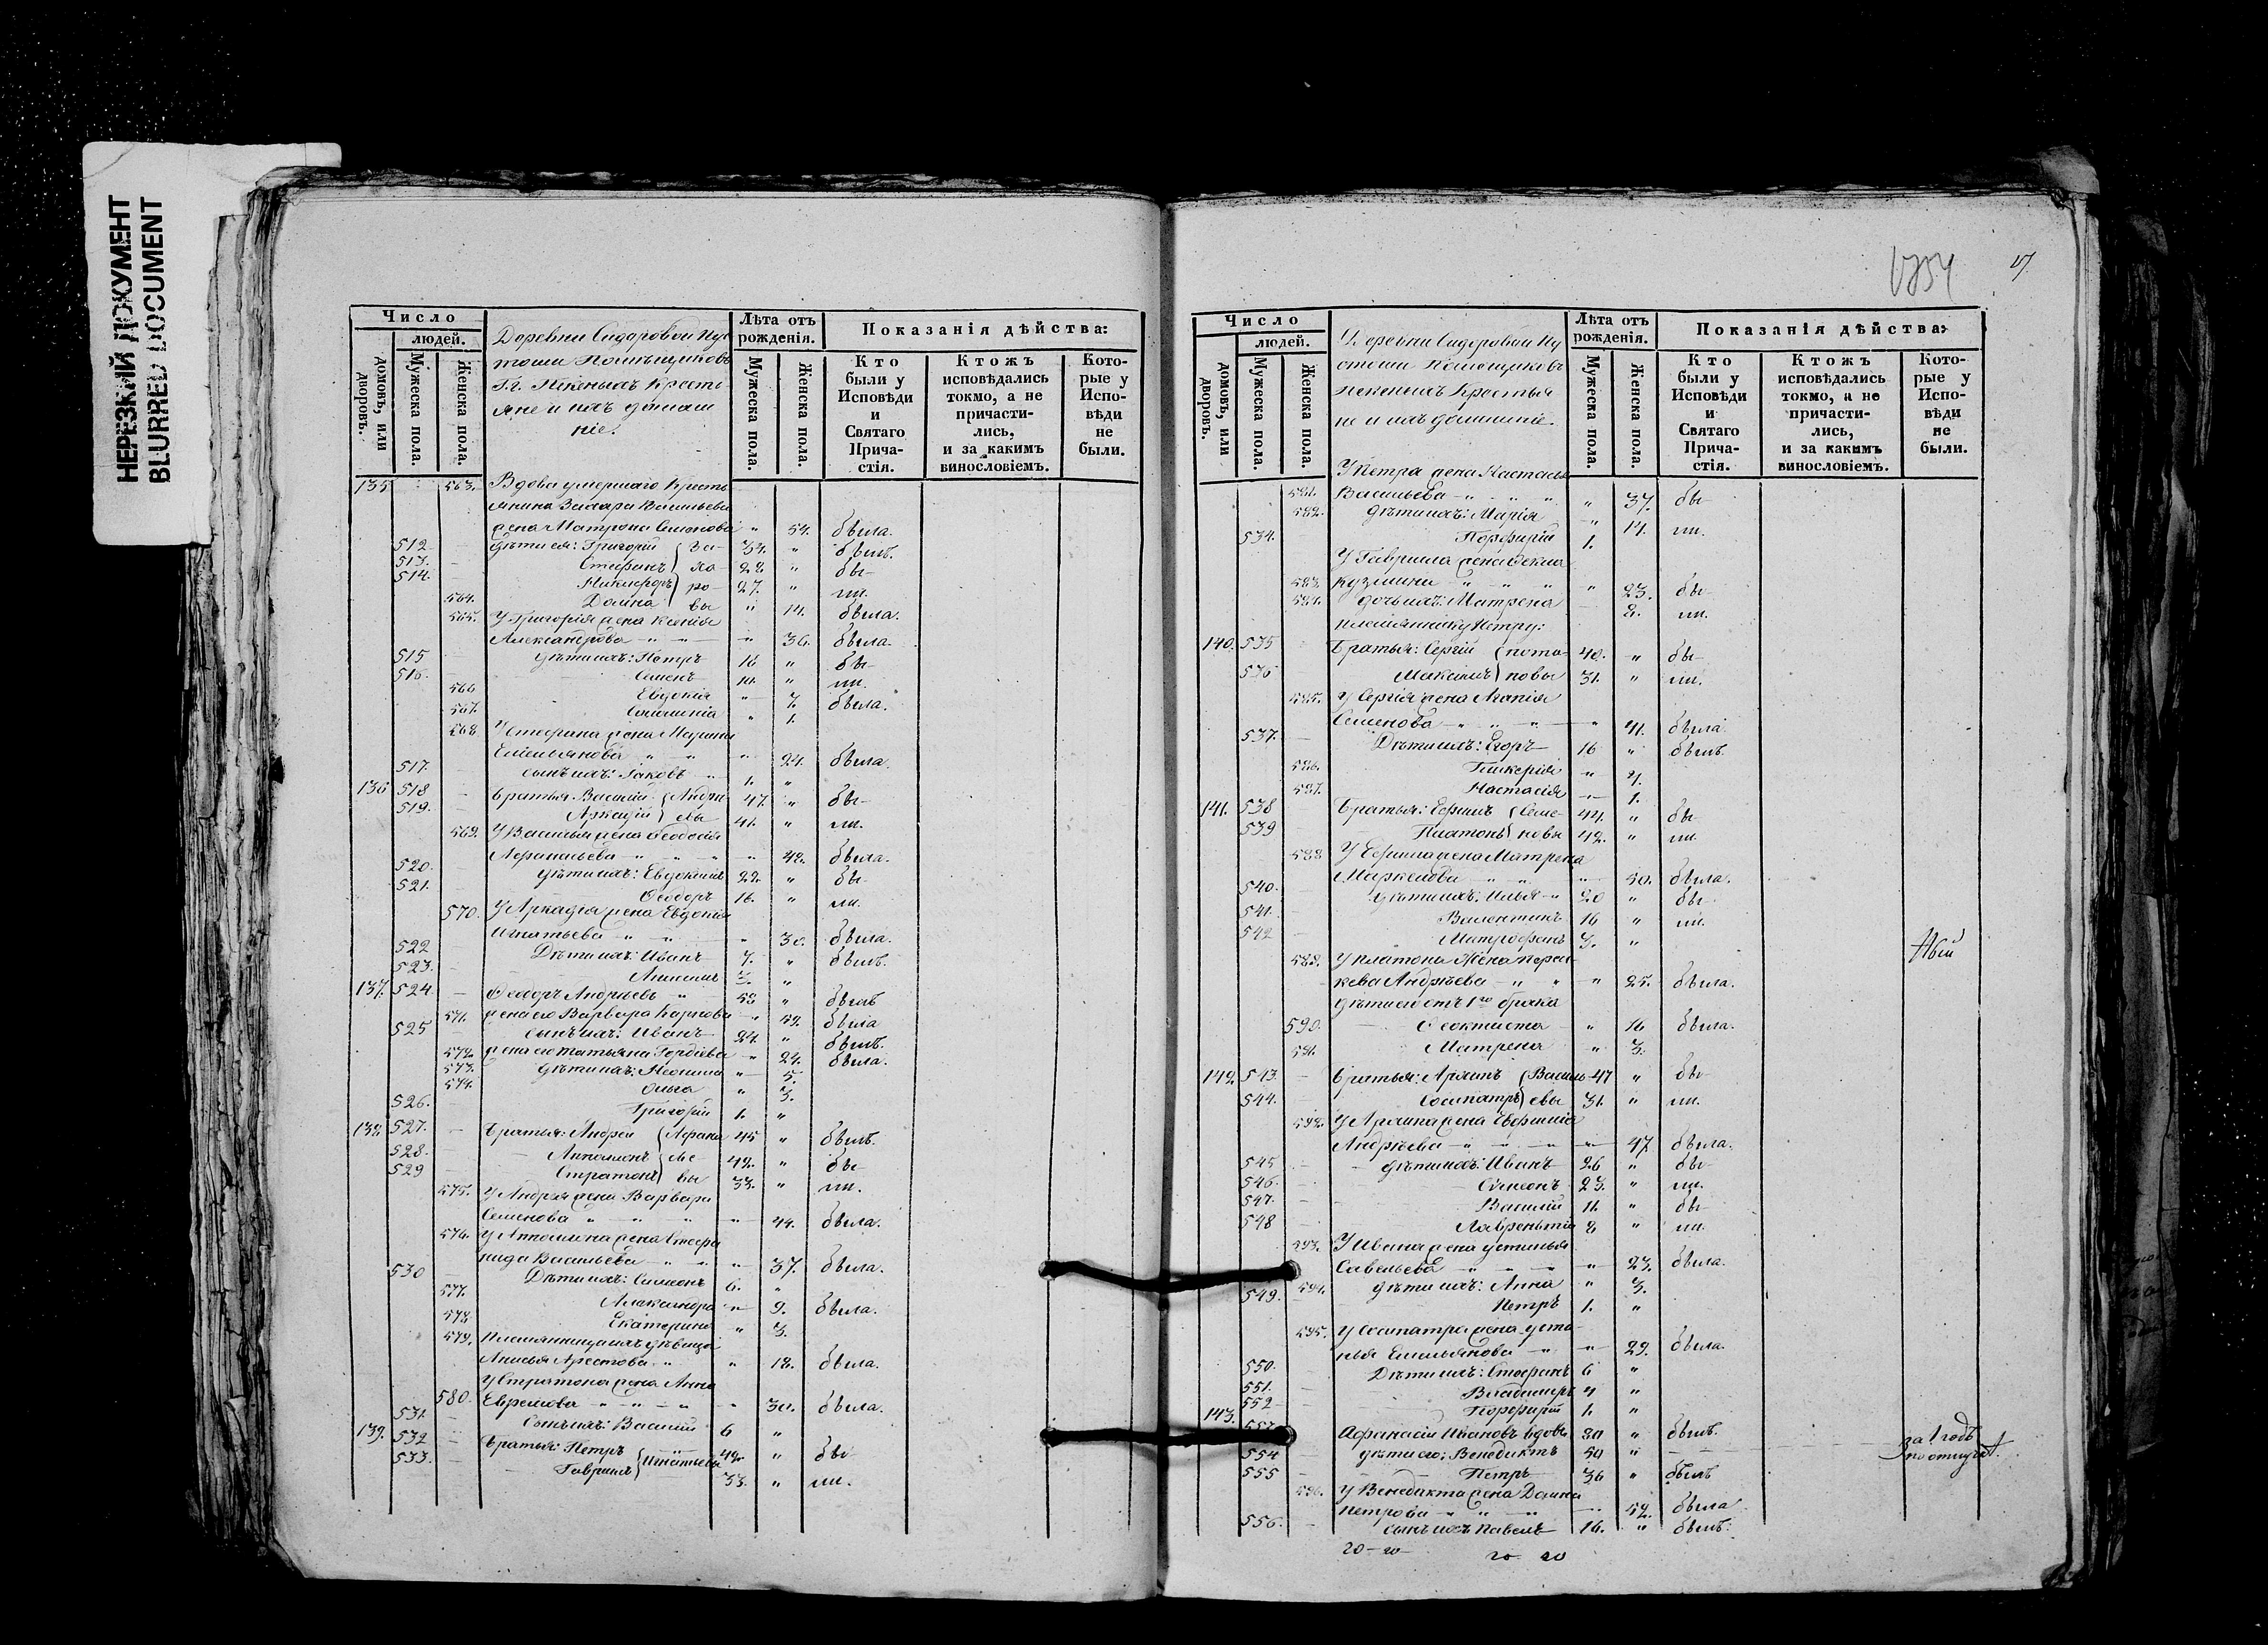 НЕРЕЗКИЙ ДОКУМЕНТ
BLURRED DOCUMENT
Число
людей.
домовъ, или дворовъ.
Мужеска пола.
Женска пола.
Деревни Сидоровой Пус
тоши Помѣщиковъ
кресть
яне и ихъ домаш
ніе.
Лѣта отъ рожденія.
Мужеска пола.
Женска пола.
Показанія дѣйства:
Кто были у Исповѣди и Святаго Прича-стія.
Ктожъ исповѣдались токмо, а не причасти-лись, и за какимъ винословіемъ.
Кото-рые у Испо-вѣди не были.
135 563. Вдова умершаго кресть
янина Захара Васильева
жена Матрона Семенова " 54. была.
512. дѣти ея: Григорій { За- 34. " былъ.
513. Стефанъ } ха- 28 " бы-
514. Никифоръ } ро- 27. " ли.
564. Домна } вы " 14. была.
565. У Григорія жена Ксенія
Александрова " " " 36. была.
515 дѣти ихъ: Петръ 16 " бы-
516. Семенъ 10. " ли.
566 Евдокія " 7. была.
567. " 1.
568. У Стефана жена Марина
Емельянова " " " 24. была.
517. сынъ ихъ: Іаковъ " 1. "
136 518 Братья: Василій { Андре 47. " бы-
519. Аркадій } евы 41. " ли.
569. У Василья жена Ѳеодосія
Афанасьева " " " 42. была.
520. дѣти ихъ: Евдокимъ 22. " бы-
521. Ѳеодоръ 16. " ли.
570. У Аркадія жена Евдокія
Игнатьева " " " 30. была.
522 Дѣти ихъ: Иванъ 7. " былъ.
523. 3. "
137. 524. Ѳеодоръ Андреевъ " 58 " былъ
571. жена его Варвара Карпова " 59. была
525 сынъ ихъ: Иванъ 24. " былъ.
572. жена его Татьяна Гордіева " 24. была.
573. дѣти ихъ: " 5.
574. Ольга " 3.
526. Григорій 1. "
138 527. Братья: Андрей { Афана 45 " былъ.
528. Апполонъ { сье- 42. " бы-
529 Стратонъ } вы 33. " ли.
575. У Андрея жена Варвара
Семенова " " " " 44. была.
576. У Апполона жена Стефа
нида Васильева " " " 37. была.
530 Дѣти ихъ: Симеонъ 6. "
577. Александра " 9. была.
578 Екатерина " 3.
579. Племянница ихъ дѣвица
Анисья Арестова " " 18. была.
У Стратона жена Анна
580. Ефремова " " " " 30. была.
531. Сынъ ихъ: Василій 6 "
139. 532 Братья: Петръ { Игнатьевы 42. " бы-
533. Гавріилъ 33. " ли.
1754
17
Число
людей.
домовъ, или дворовъ.
Мужеска пола.
Женска пола.
Деревни Сидоровой Пу
стоши Помещиковъ
Крестья
не и ихъ домашніе.
Лѣта отъ рожденія.
Мужеска пола.
Женска пола.
Показанія дѣйства:
Кто были у Исповѣди и Святаго Прича-стія.
Ктожъ исповѣдались токмо, а не причасти-лись, и за какимъ винословіемъ.
Кото-рые у Испо-вѣди не были.
У Петра жена Настасья
581. Васильева " " " " 37. бы-
582. дѣти ихъ: Марія " 11. ли.
534. Порфирій 1.
У Гавріила жена Ѳекла
583. Кузмина " " " " 23. бы-
584. дочь ихъ: Матрена 8. ли.
племяннику Петру:
140. 535 Братья: Сергій { Пота- 40. " бы-
536 Максимъ } повы 31. " ли.
585. У Сергія жена Агапія
Семенова " " " " 41. была.
537. Дѣти ихъ: Егоръ 16 " былъ.
586. Гликерія " 4.
587. Настасія " 1.
141. 538 Братья: Ефимъ { Семе- 44. " бы-
539 Платонъ } новы 42. " ли.
588 У Ефима жена Матрена
Маркелова " " " 50. была.
540. дѣти ихъ: Илья " 20 " бы-
541. Валентинъ 16 " ли.
542 Митрофанъ 3. "
589. У Платона Жена Парас
кева Андрѣева " " " 25. была.
дѣти ей отъ 1го брака
590. Ѳеоктиста " 16 была.
591. Матрена " 3.
142. 543. Братья: { Василь 47 " бы-
544. Сосипатръ } евы 31. " ли.
592. жена Евфимія
Андрѣева " " " " 47. была.
545 дѣти ихъ: Иванъ 26 " бы-
546. Симеонъ 23. " ли.
547. Василій 11. " бы-
548 Лаврентій 8 " ли.
593. У Ивана жена Устинья
Савельева " " " " 23. была.
594. дѣти ихъ: Анна " 3.
549. Петръ 1. "
595. У Сосипатра жена Усти-
нья Емельянова " " 29. была.
550. Дѣти ихъ: Стефанъ 6 "
551. Владимиръ 4 "
552 Порфирій 1. "
143. 553 Афанасій Ивановъ вдовъ 80 " былъ.
554 дѣти его: Венедиктъ 50 " за 1 годъ
по отлуч.
555 Петръ 36 " былъ
596. У Венедикта жена Домна
Петрова " " " 52. была
556. сынъ ихъ Павелъ 16. " былъ.